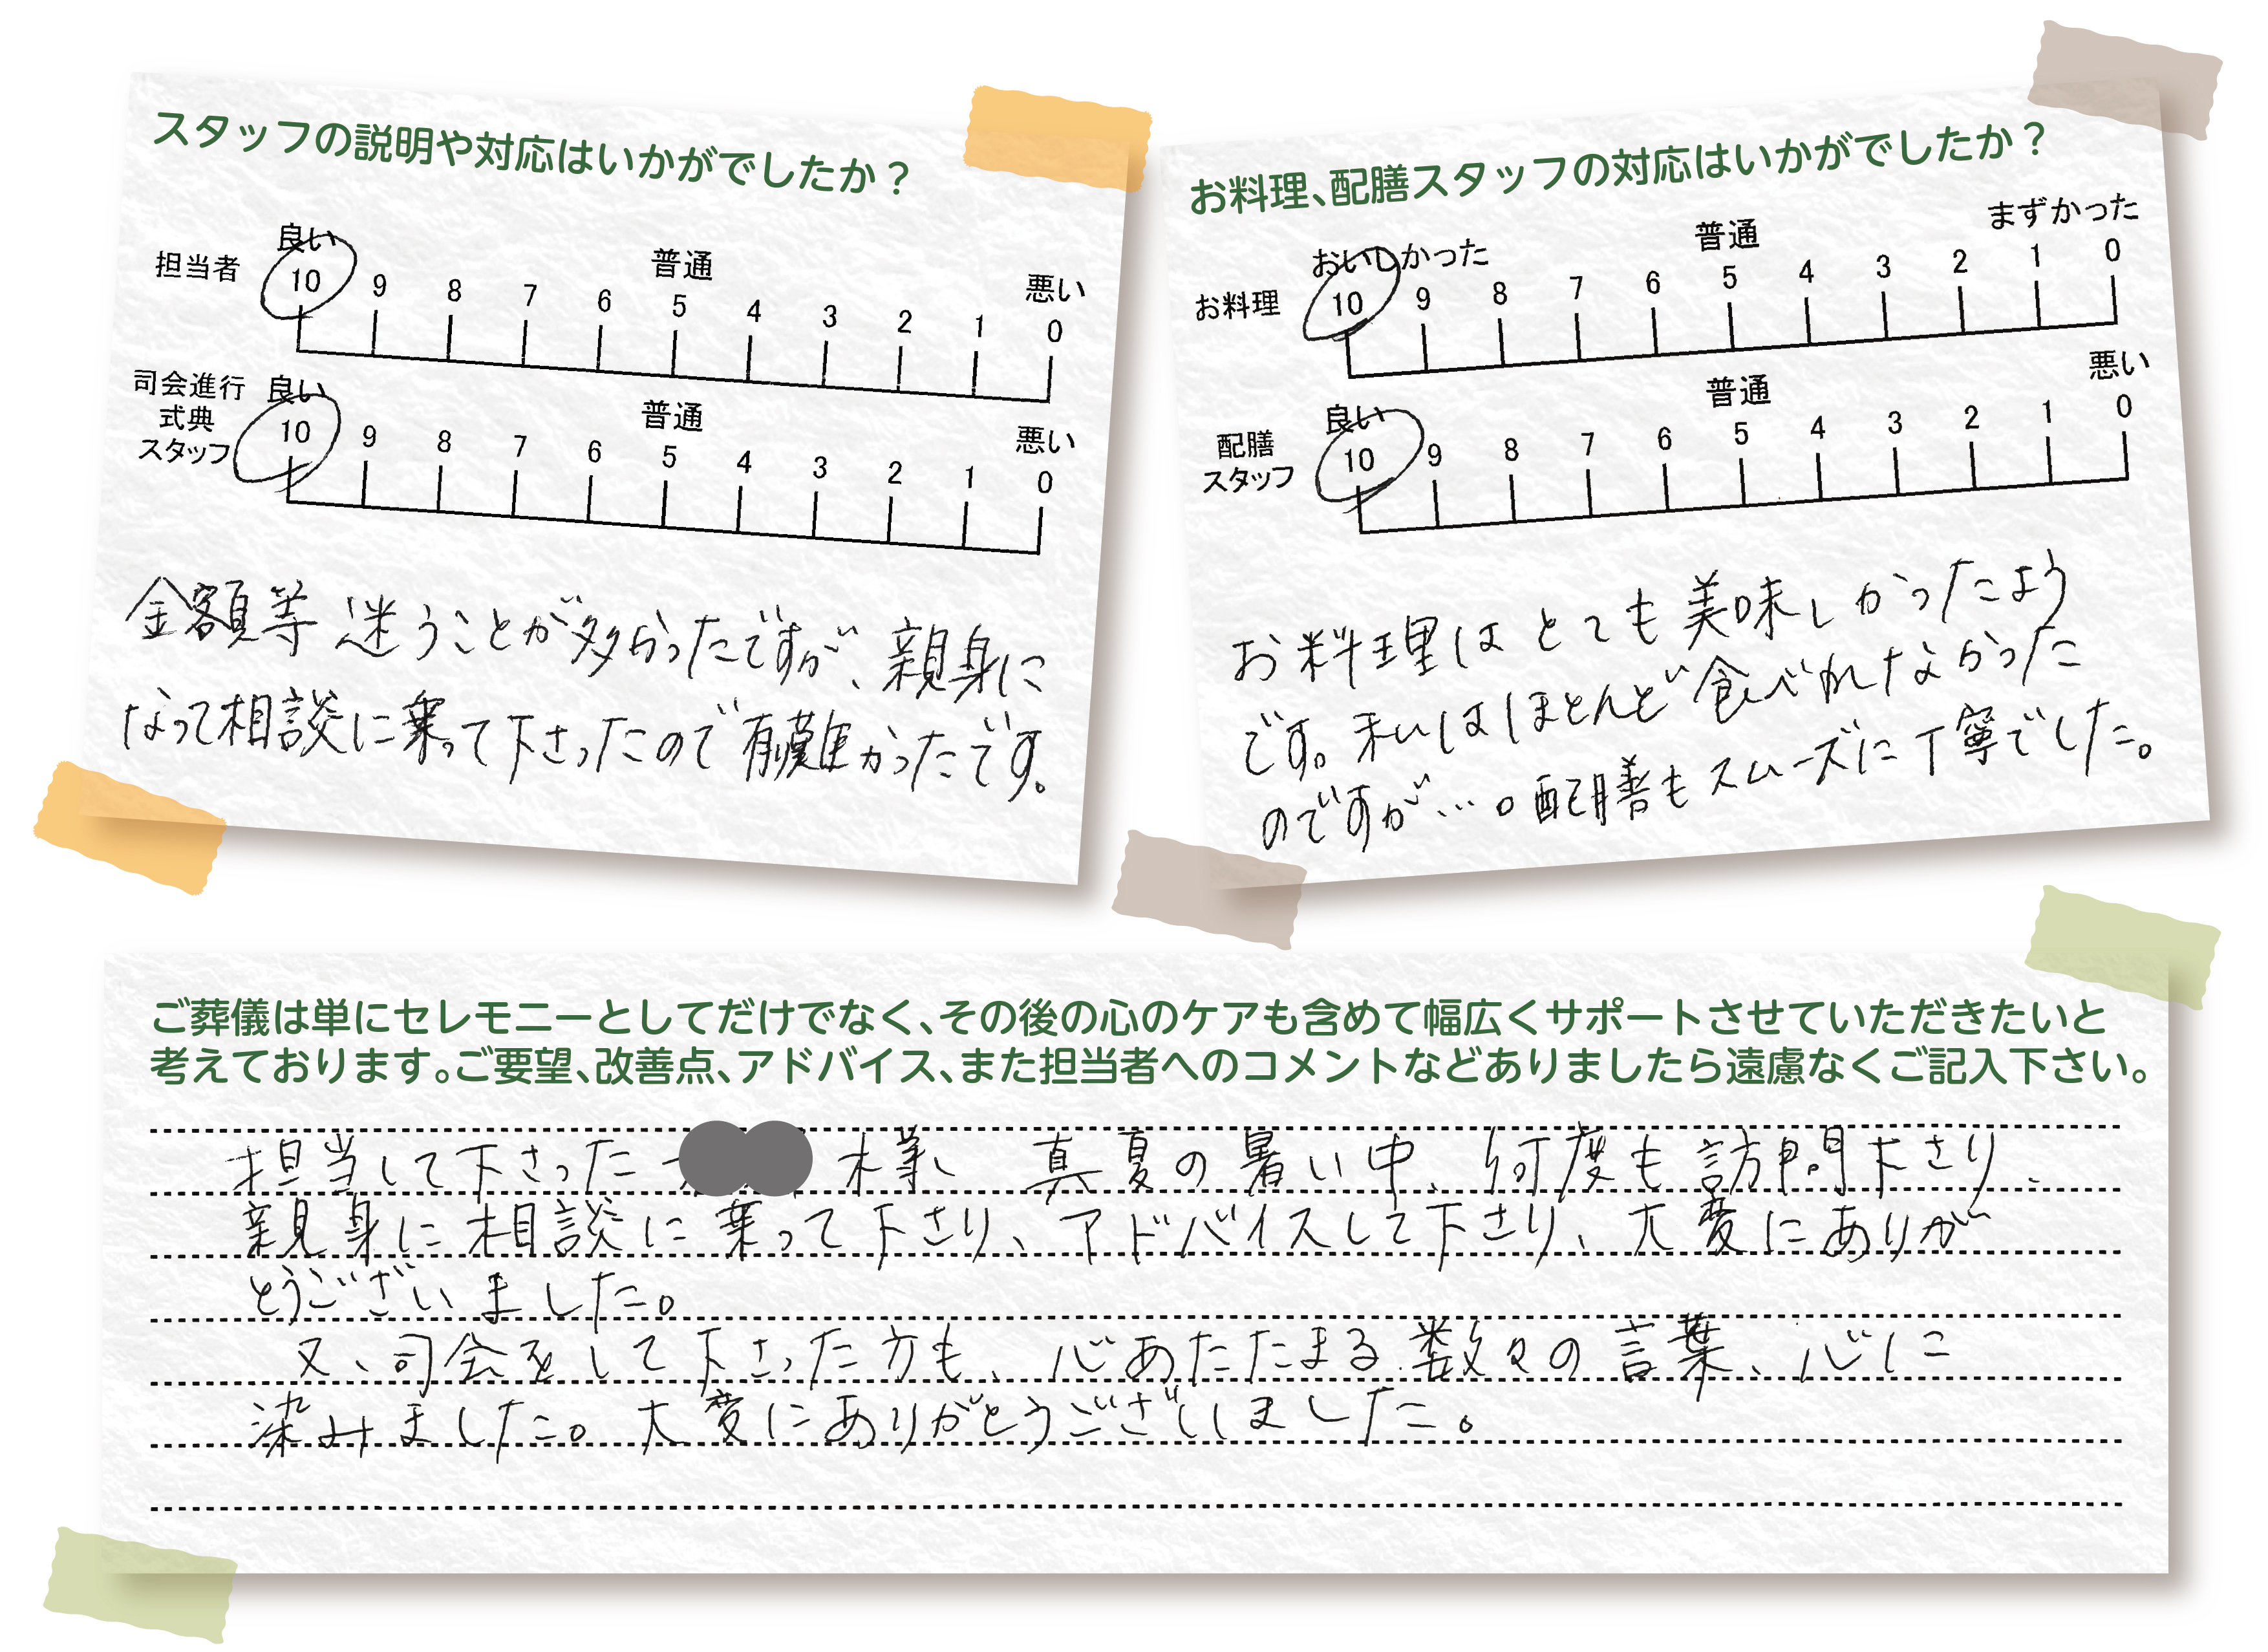 スタッフの説明や対応はいかがでしたか？
担当者
良い 普通 悪い
10 9 8 7 6 5 4 3 2 1 0
司会進行
式典
スタッフ
良い 普通 悪い
10 9 8 7 6 5 4 3 2 1 0
金額等 迷うことが多かったですが、親身に
なって相談に乗って下さったので有難かったです。
お料理、配膳スタッフの対応はいかがでしたか？
お料理
おいしかった 普通 まずかった
10 9 8 7 6 5 4 3 2 1 0
配膳
スタッフ
良い 普通 悪い
10 9 8 7 6 5 4 3 2 1 0
お料理はとても美味しかったよう
です。私はほとんど食べれなかった
のですが…。配膳もスムーズに丁寧でした。
ご葬儀は単にセレモニーとしてだけでなく、その後の心のケアも含めて幅広くサポートさせていただきたいと
考えております。ご要望、改善点、アドバイス、また担当者へのコメントなどありましたら遠慮なくご記入下さい。
担当して下さった 様、真夏の暑い中、何度も訪問下さり、
親身に相談に乗って下さり、アドバイスして下さり、大変にありが
とうございました。
又、司会をして下さった方も、心あたたまる数々の言葉、心に
染みました。大変にありがとうございました。